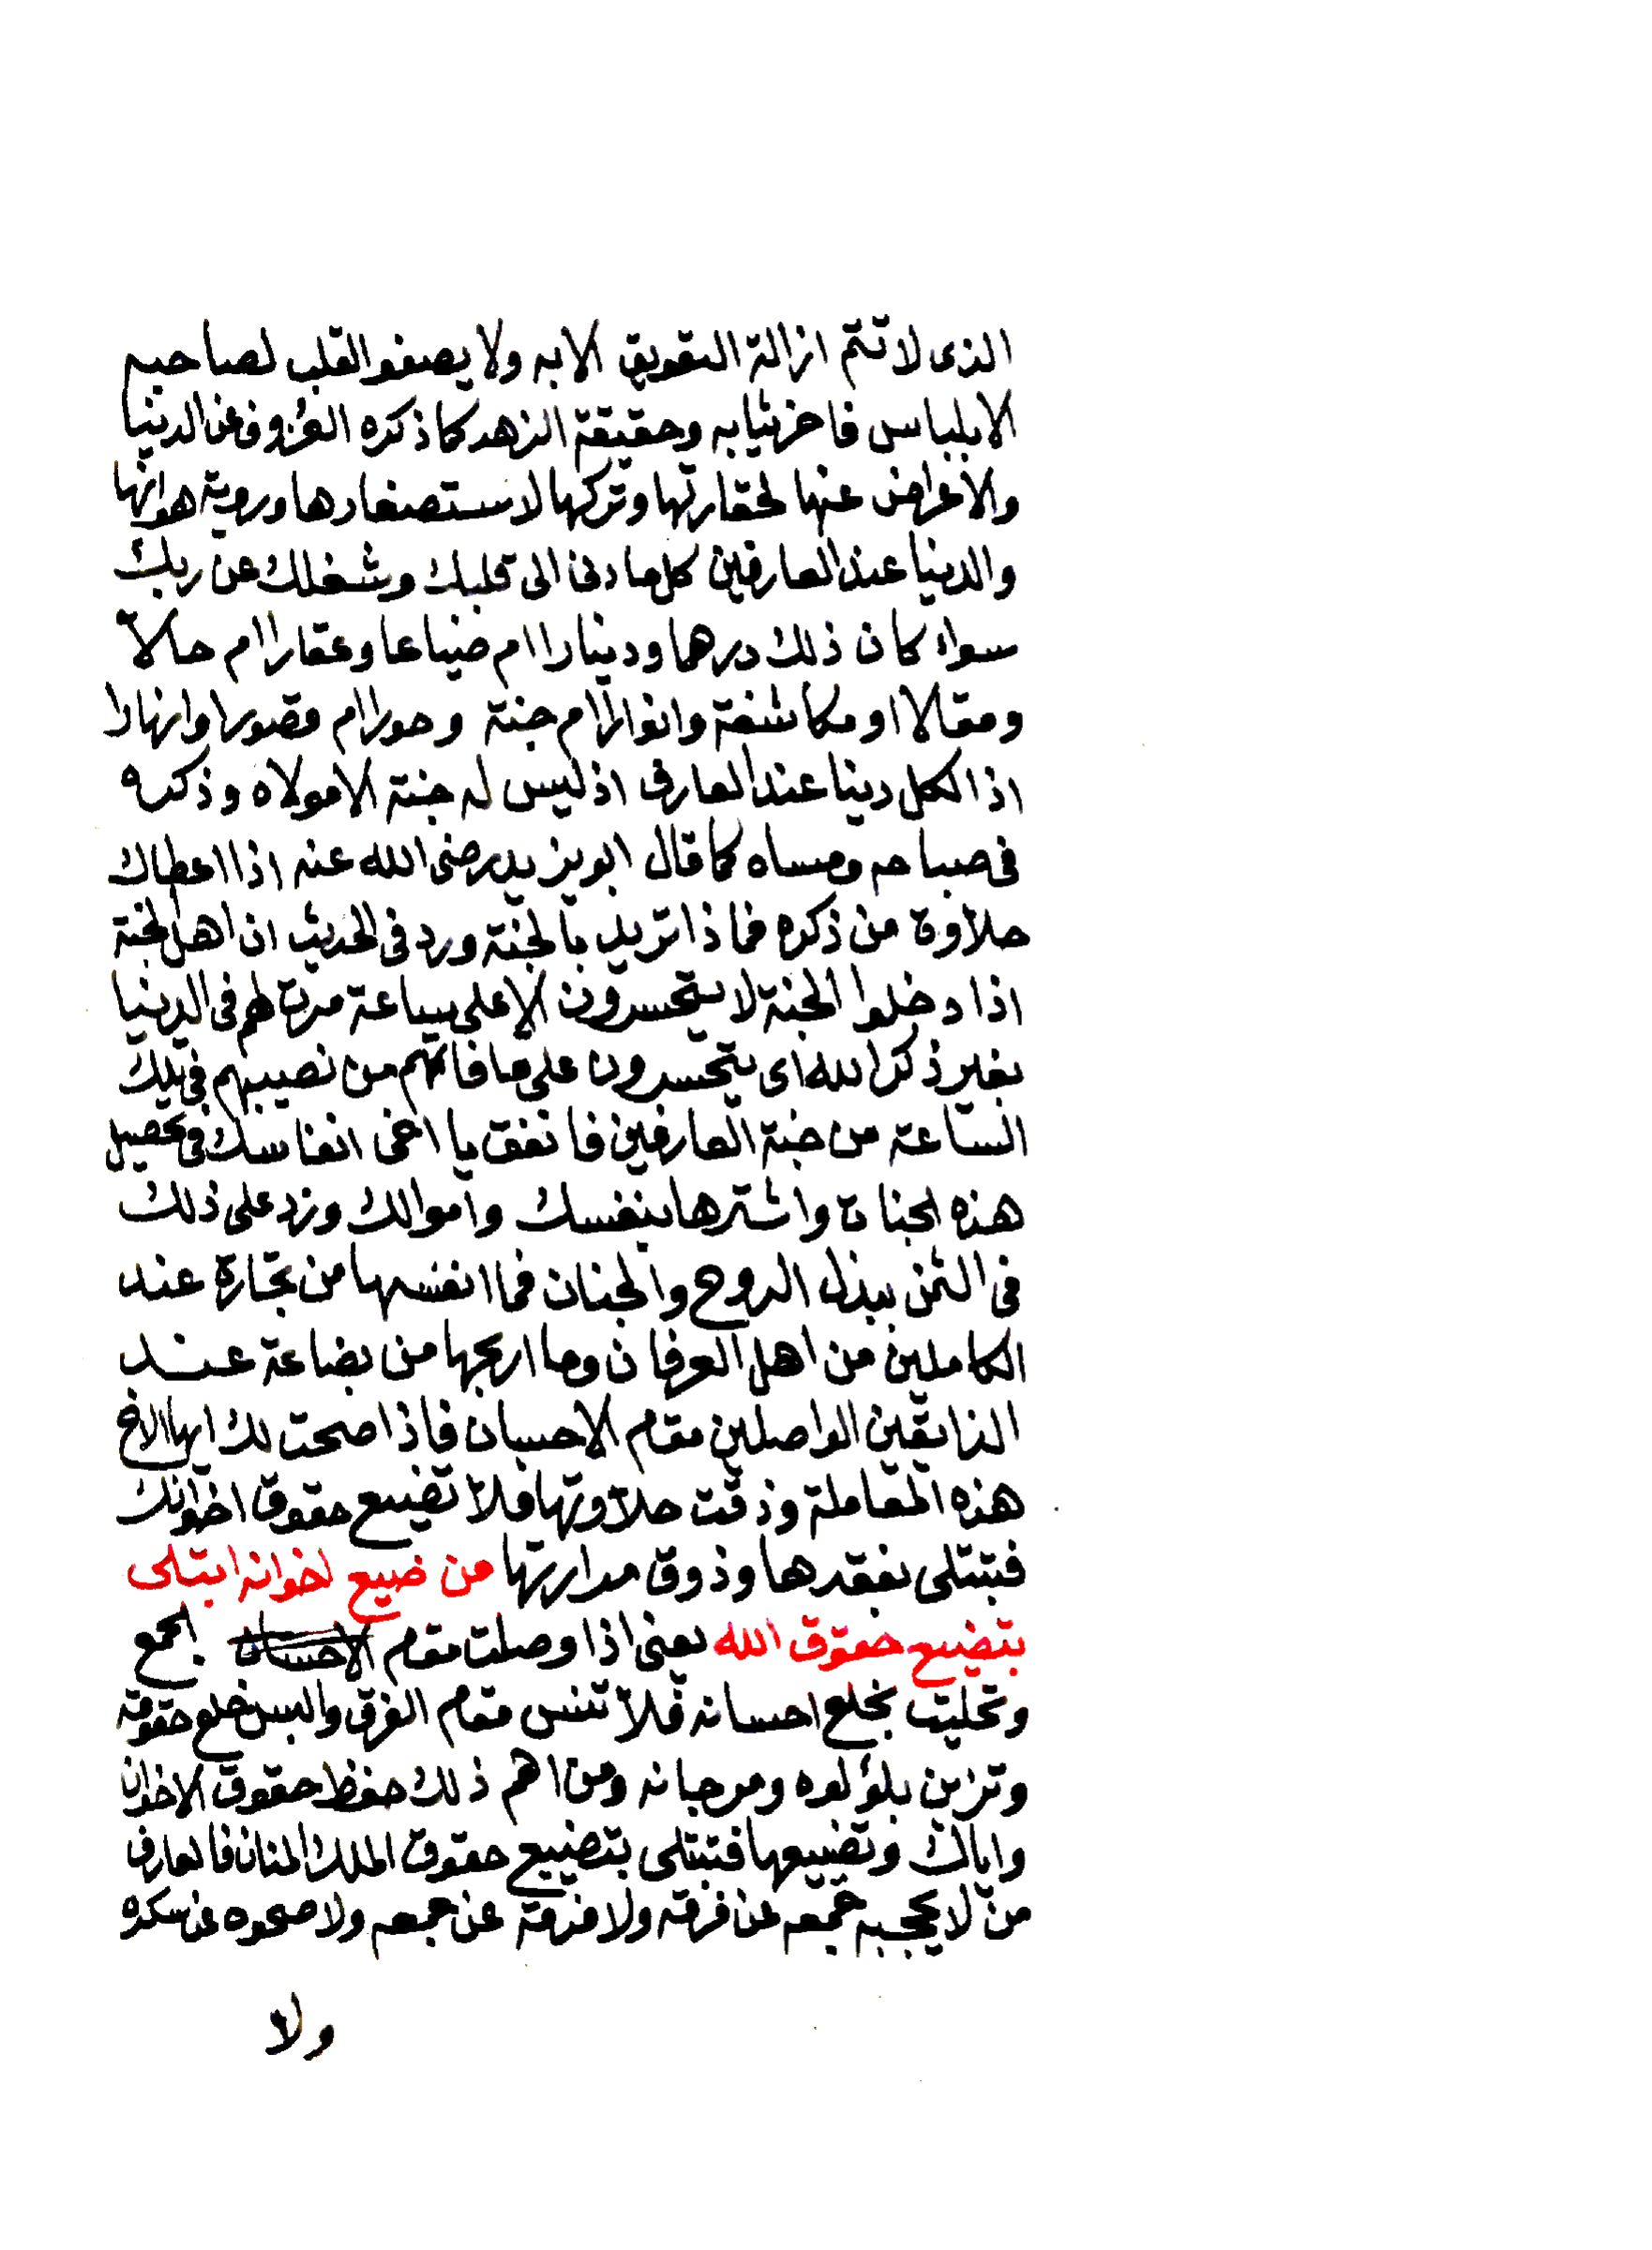 الذى لا تتم ازالة التعويق الا به ولا يصفو القلب لصاحبه
الا بلباس فاخر ثيابه وحقيقة الزهد كما ذكره العزوف عن الدنيا
والاعراض عنها لحقارتها وتركها لاستصغارها وروية هوانها
والدنيا عند العارفين كل ما دنى الى قلبك وشغلك عن ربك
سواء كان ذلك درهما ودينارا ام ضياعا وعقارا ام حالا
ومقالا او مكاشفة وانوارا ام جنة وحورا ام قصورا وانهارا
اذ الكل دنيا عند العارف اذ ليس له جنة الا مولاه وذكره
فى صباحه ومساه كما قال ابو يزيد رضى الله عنه اذا اعطاك
حلاوة من ذكره فماذا تريد بالجنة ورد فى الحديث ان اهل الجنة
اذا دخلوا الجنة لا يتحسرون الا على ساعة مرت لهم فى الدنيا
بغير ذكر الله اى يتحسرون على ما فاتهم من نصيبهم فى تلك
الساعة من جنة العارفين فانفق يا اخى انفاسك فى تحصيل
هذه الجنات واشترها بنفسك واموالك وزد على ذلك
فى الثمن ببذل الروح والجنان فما انفسها من تجارة عند
الكاملين من اهل العرفان وما اربحها من بضاعة عند
الذايقين الواصلين مقام الاحسان فاذا صحت لك ايها الاخ
هذه المعاملة وذقت حلاوتها فلا تضيع حقوق اخوانك
فتبتلى بفقدها وذوق مرارتها من ضيع اخوانه ابتلى
بتضييع حقوق الله يعنى اذا وصلت مقام الاحسان الجمع
وتحليت بخلع احسانه فلا تنس مقام الفرق والبس خلع حقوقه
وتزين بلؤلوه ومرجانه ومن اهم ذلك حفظ حقوق الاخوان
واياك وتضييعها فتبتلى بتضييع حقوق الملك المنان فالعارف
من لا يحجبه جمعه عن فرقه ولا فرقه عن جمعه ولا صحوه عن سكره
ولا